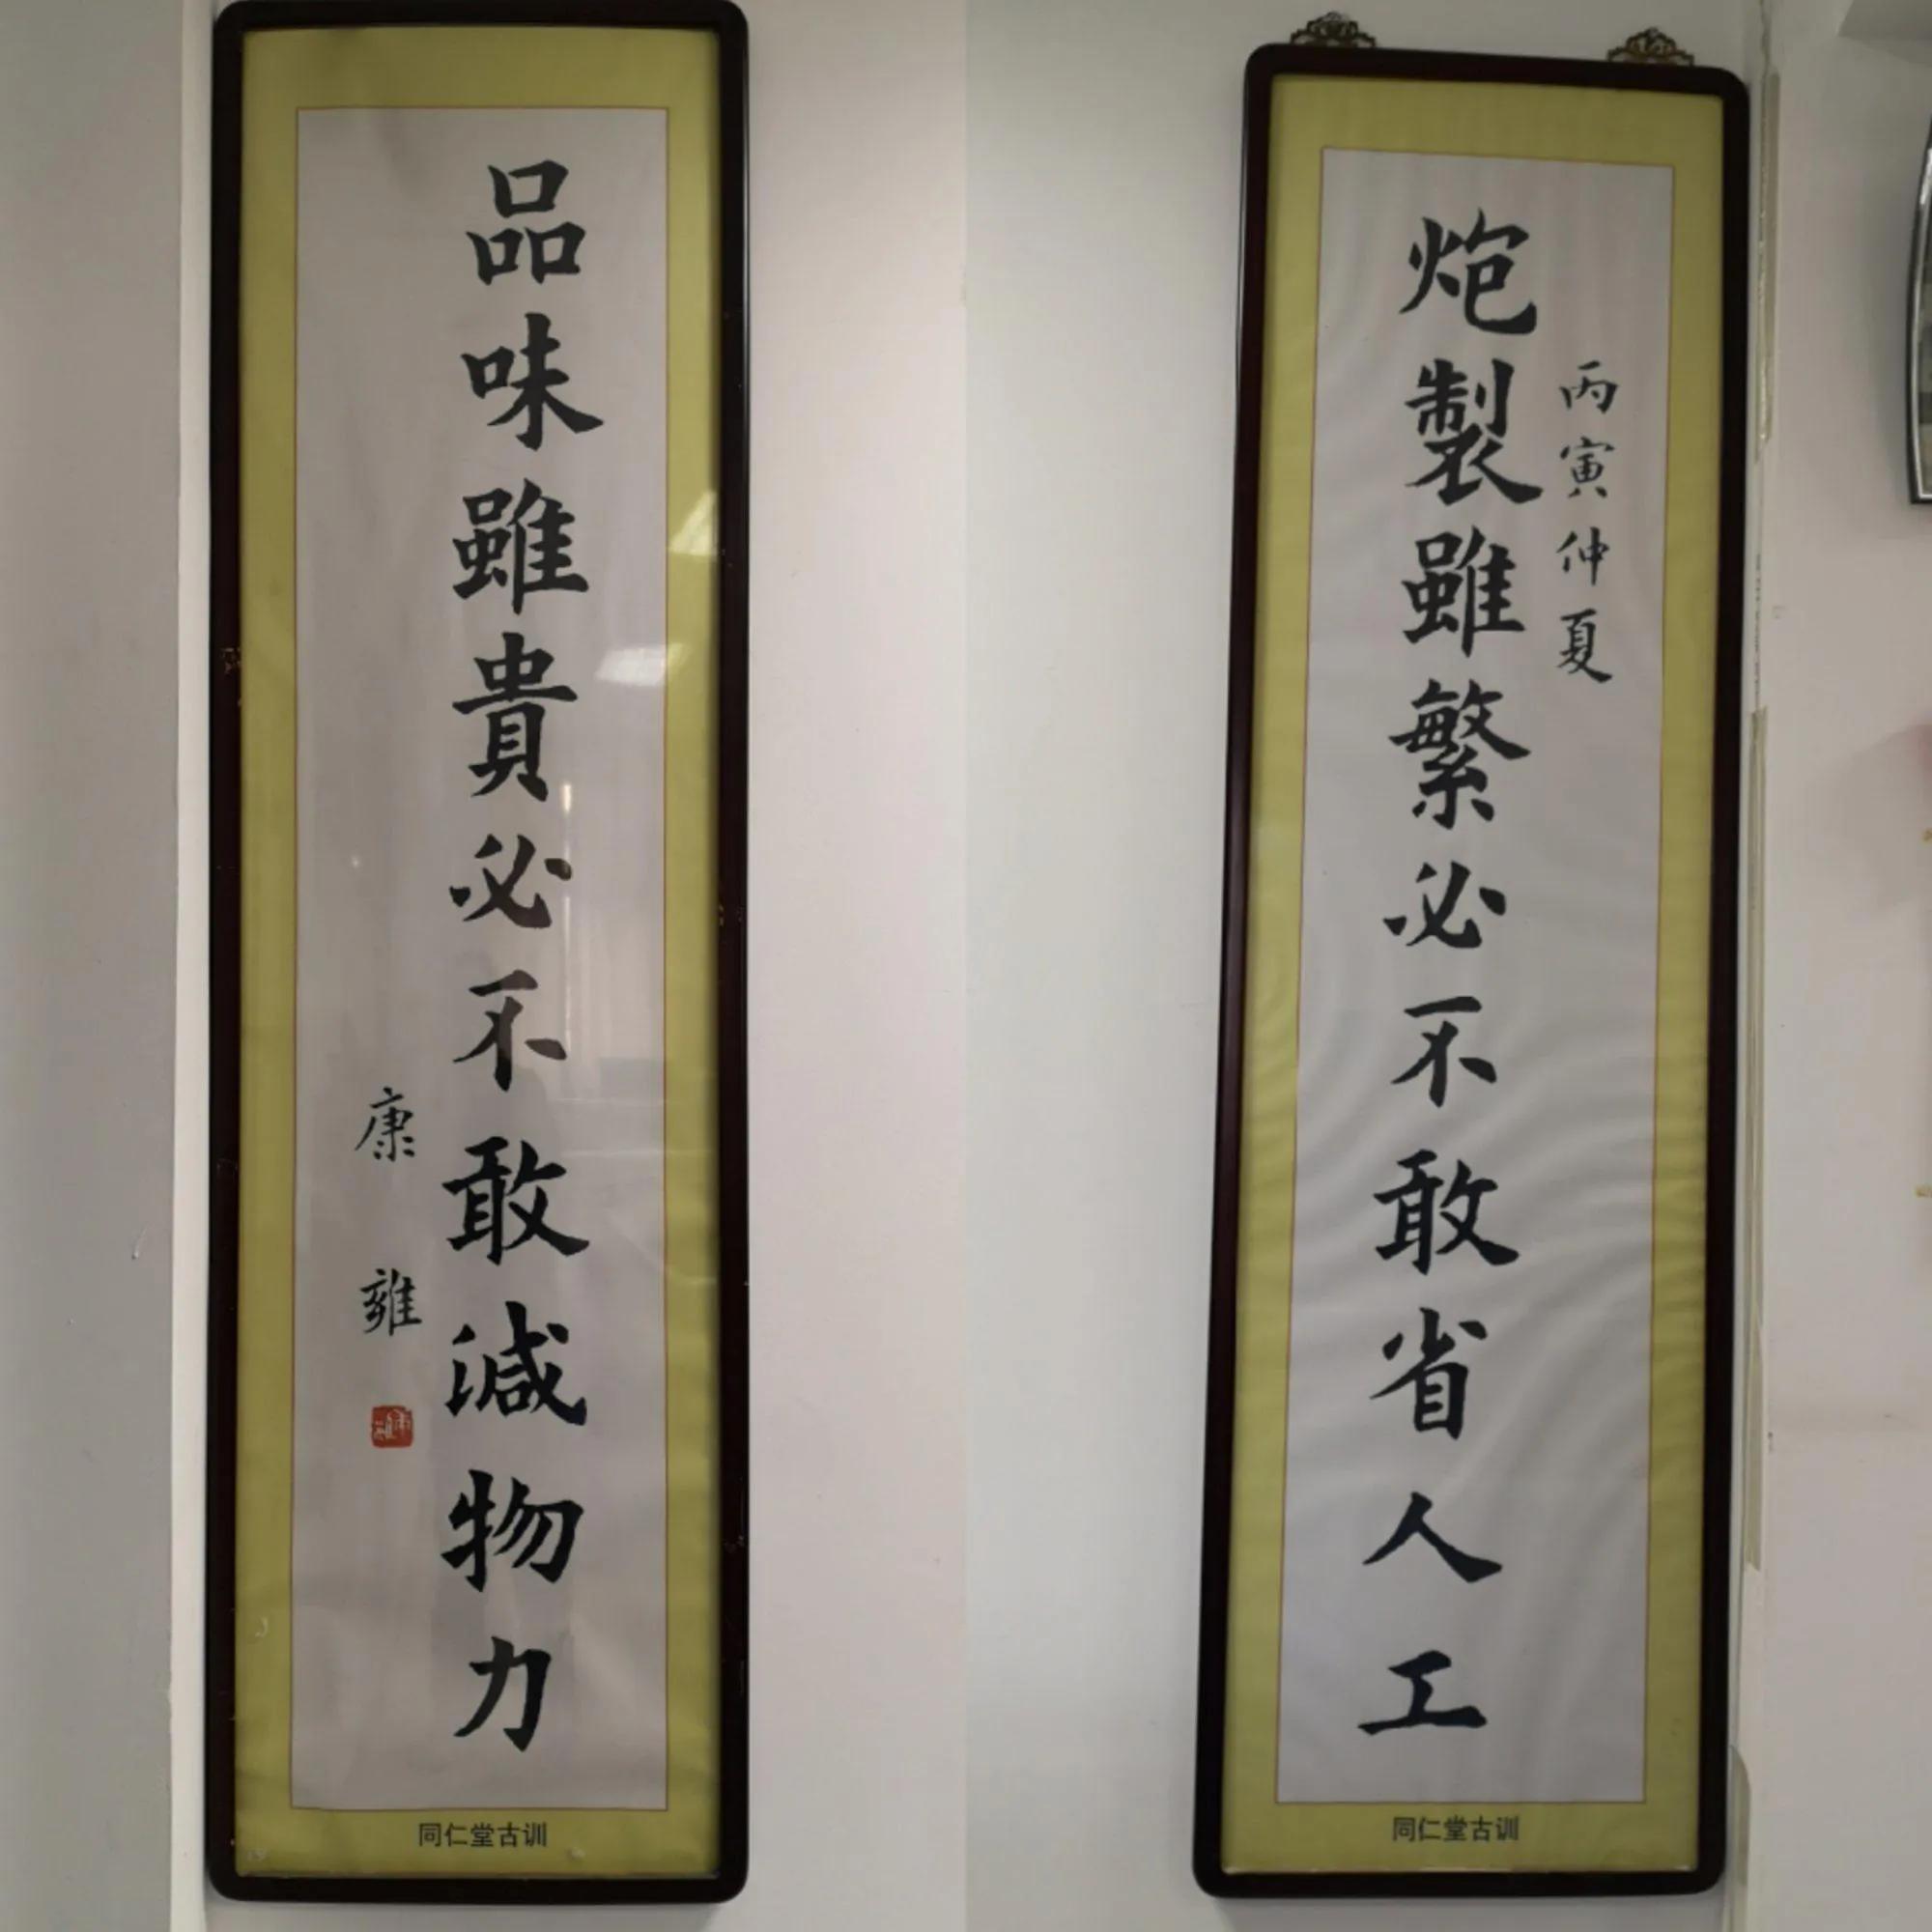 炮製雖繁必不敢省人工
丙寅仲夏
同仁堂古训
品味雖貴必不敢減物力
康雍
同仁堂古训